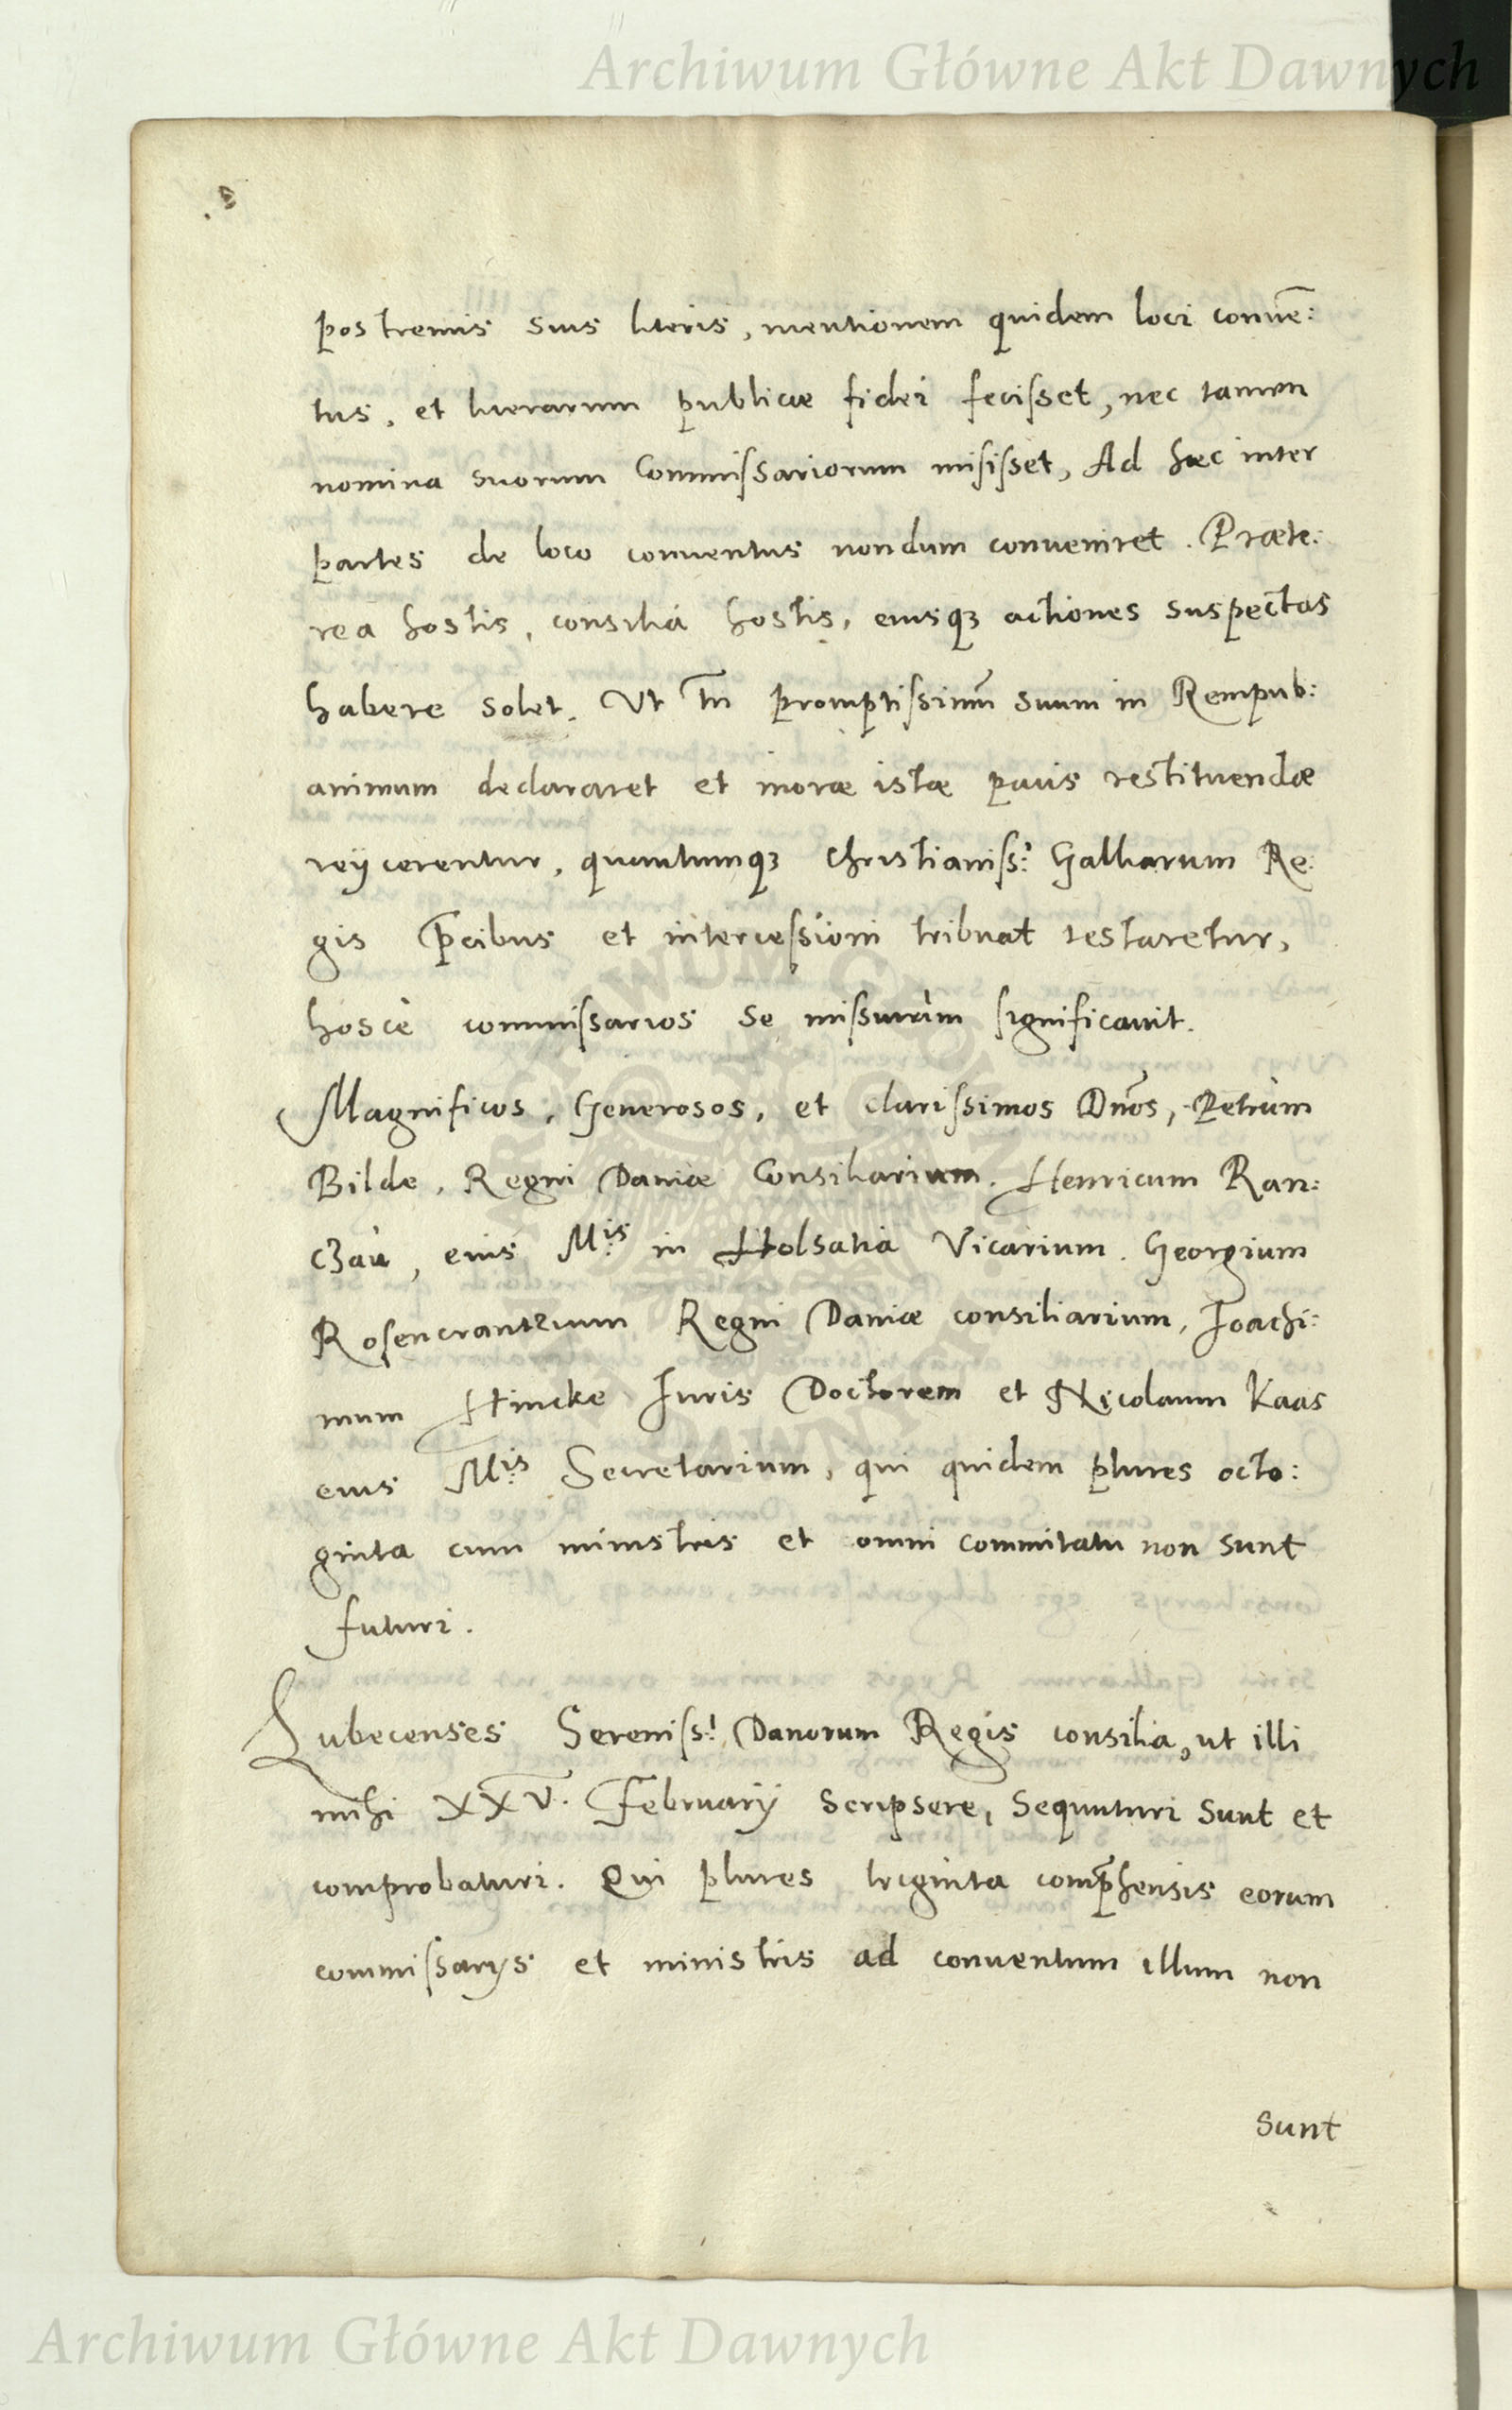 Archiwum Główne Akt Dawnych
postremis suis literis, mentionem quidem loci conuē:
tus, et literarum publicae fidei feciſset, nec tamen
nomina suorum Commiſsariorum misiſset, Ad haec inter
partes de loco conuentus nondum conueniret. Praete:
rea hostis, consilia hostis, eiusq3 actiones suspectas
habere solet. Ut tn̄ promptiſsimū suum in Rempub:
animum declararet et morae istae pacis restituendae
reijcerentur, quantumq3 Christianiſs: Galliarum Re:
gis p̄cibus et interceſsioni tribuat testaretur,
hosce commiſsarios se miſsurum ſignificauit.
Magnificos, Generosos, et clariſsimos Dn̄os, Petrum
Bilde, Regni Daniae Consiliarium. Henricum Ran:
c3au, eius M:is in Holsatia Vicarium. Georgium
Roſencrantzium Regni Daniae consiliarium, Ioachi:
mum Hincke Iuris Doctorem et Nicolaum Kaas
eius M:is Secretarium, qui quidem plures octo:
ginta cum ministris et omni commitatu non sunt
futuri.
Lubecenses Sereniſs:i Danorum Regis consilia, ut illi
mihi XXV. February scripsere, sequuturi sunt et
comprobaturi. Qui plures triginta comp̄hensis eorum
commiſsarijs et ministris ad conuentum illum non
sunt
Archiwum Główne Akt Dawnych